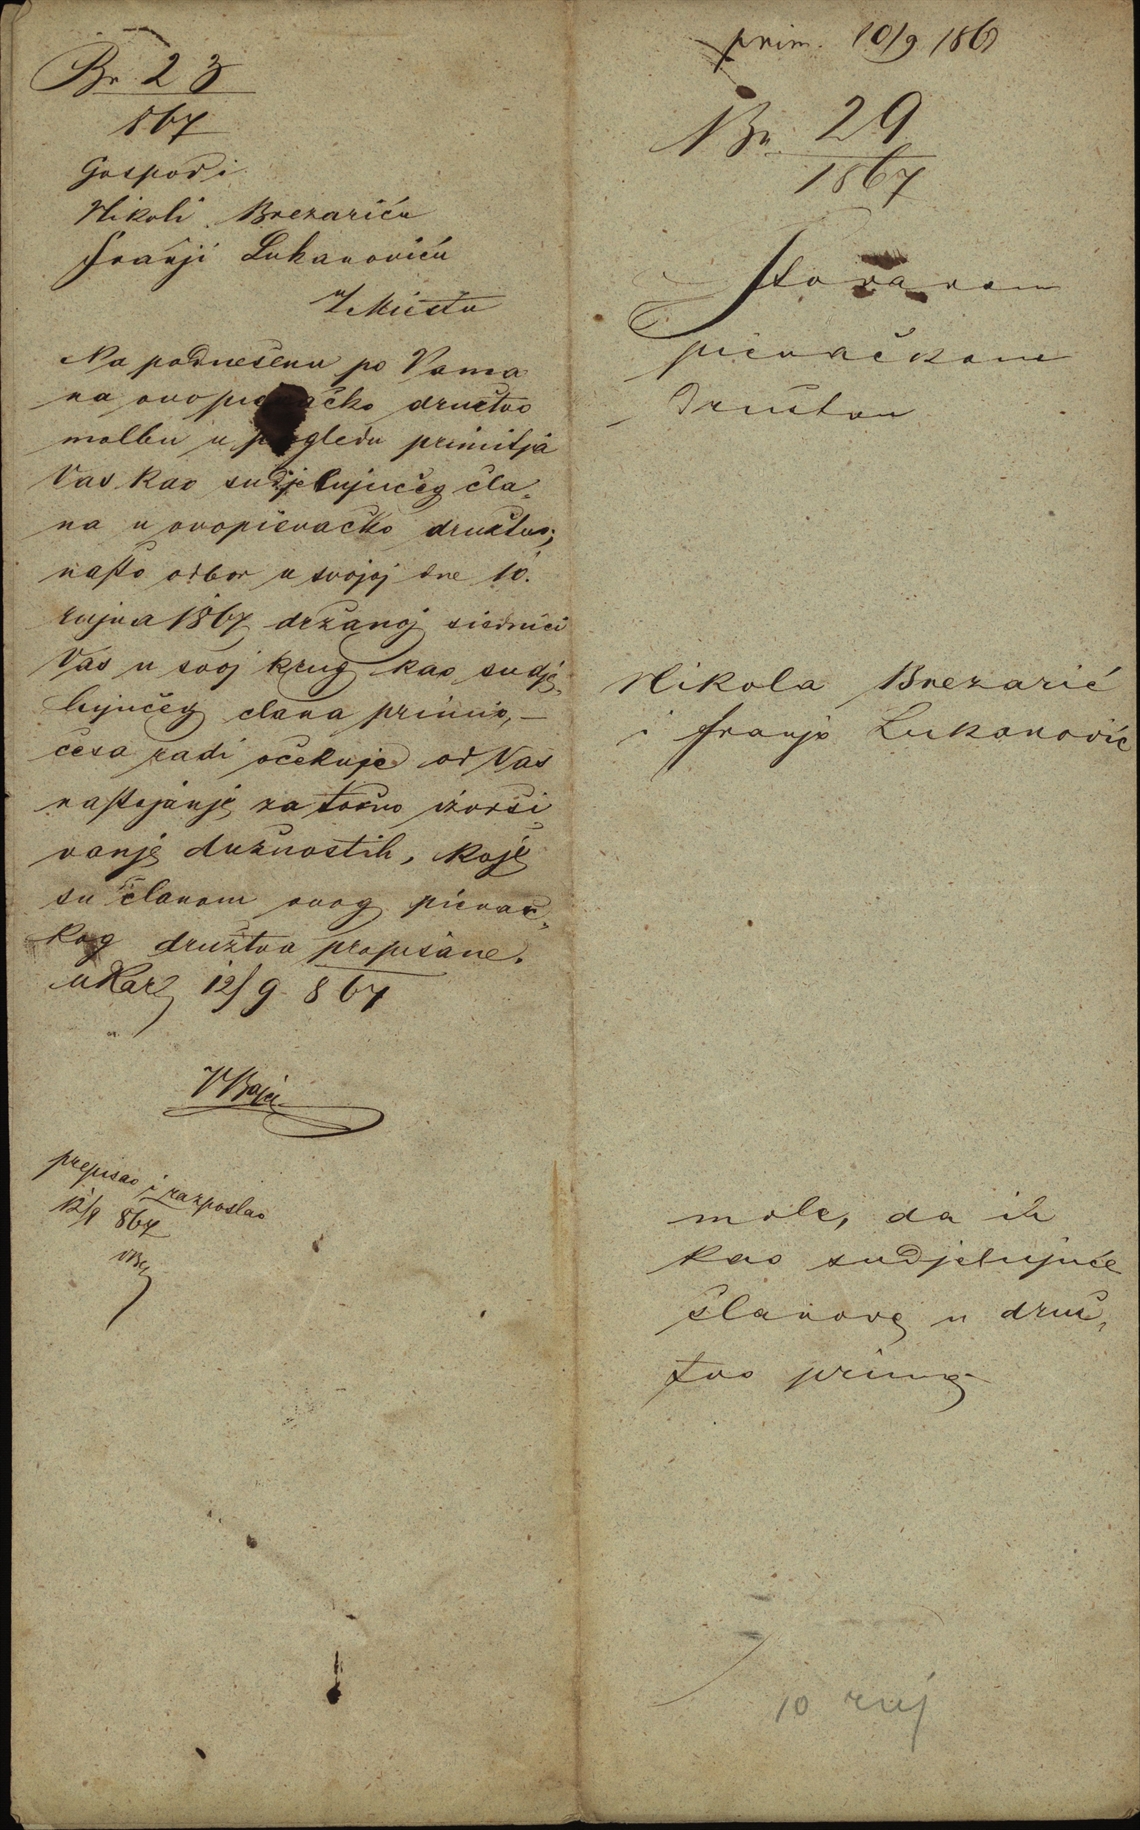 Br 23
867
Gospodi
Nikoli Brezariću
Franji Lukanoviću
u Miestu
Na podnešenu po Vama
na ovopievačko družtvo
molbu u pogledu primitja
Vas kao sudjelujućeg čla-
na u ovopievačko družtvo;
našto odbor u svojoj dne 10.
rujna 1867 držanoj siednici
Vas u svoj krug kao sudje-
lujućeg člana primio, —
česa radi očekuje od Vas
nastojanje za točno izvrši-
vanje dužnostih, koje
su članom ovog pievač-
kog družtva propisane.
u Karl 12/9 867
prepisao i razposlao
12/9 867
prim. 10/9 1867
Br. 29
1867
Slavnom
pievačkom
Družtvu
Nikola Brezarić
i Franjo Lukanović
mole, da ih
kao sudjelujuće
članove u druž-
tvo primi
10 ruj